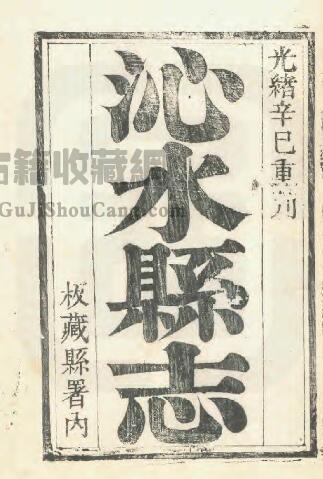 光緒辛巳重刊
沁水縣志
板藏縣署內
古籍收藏網
GuJiShouCang.com